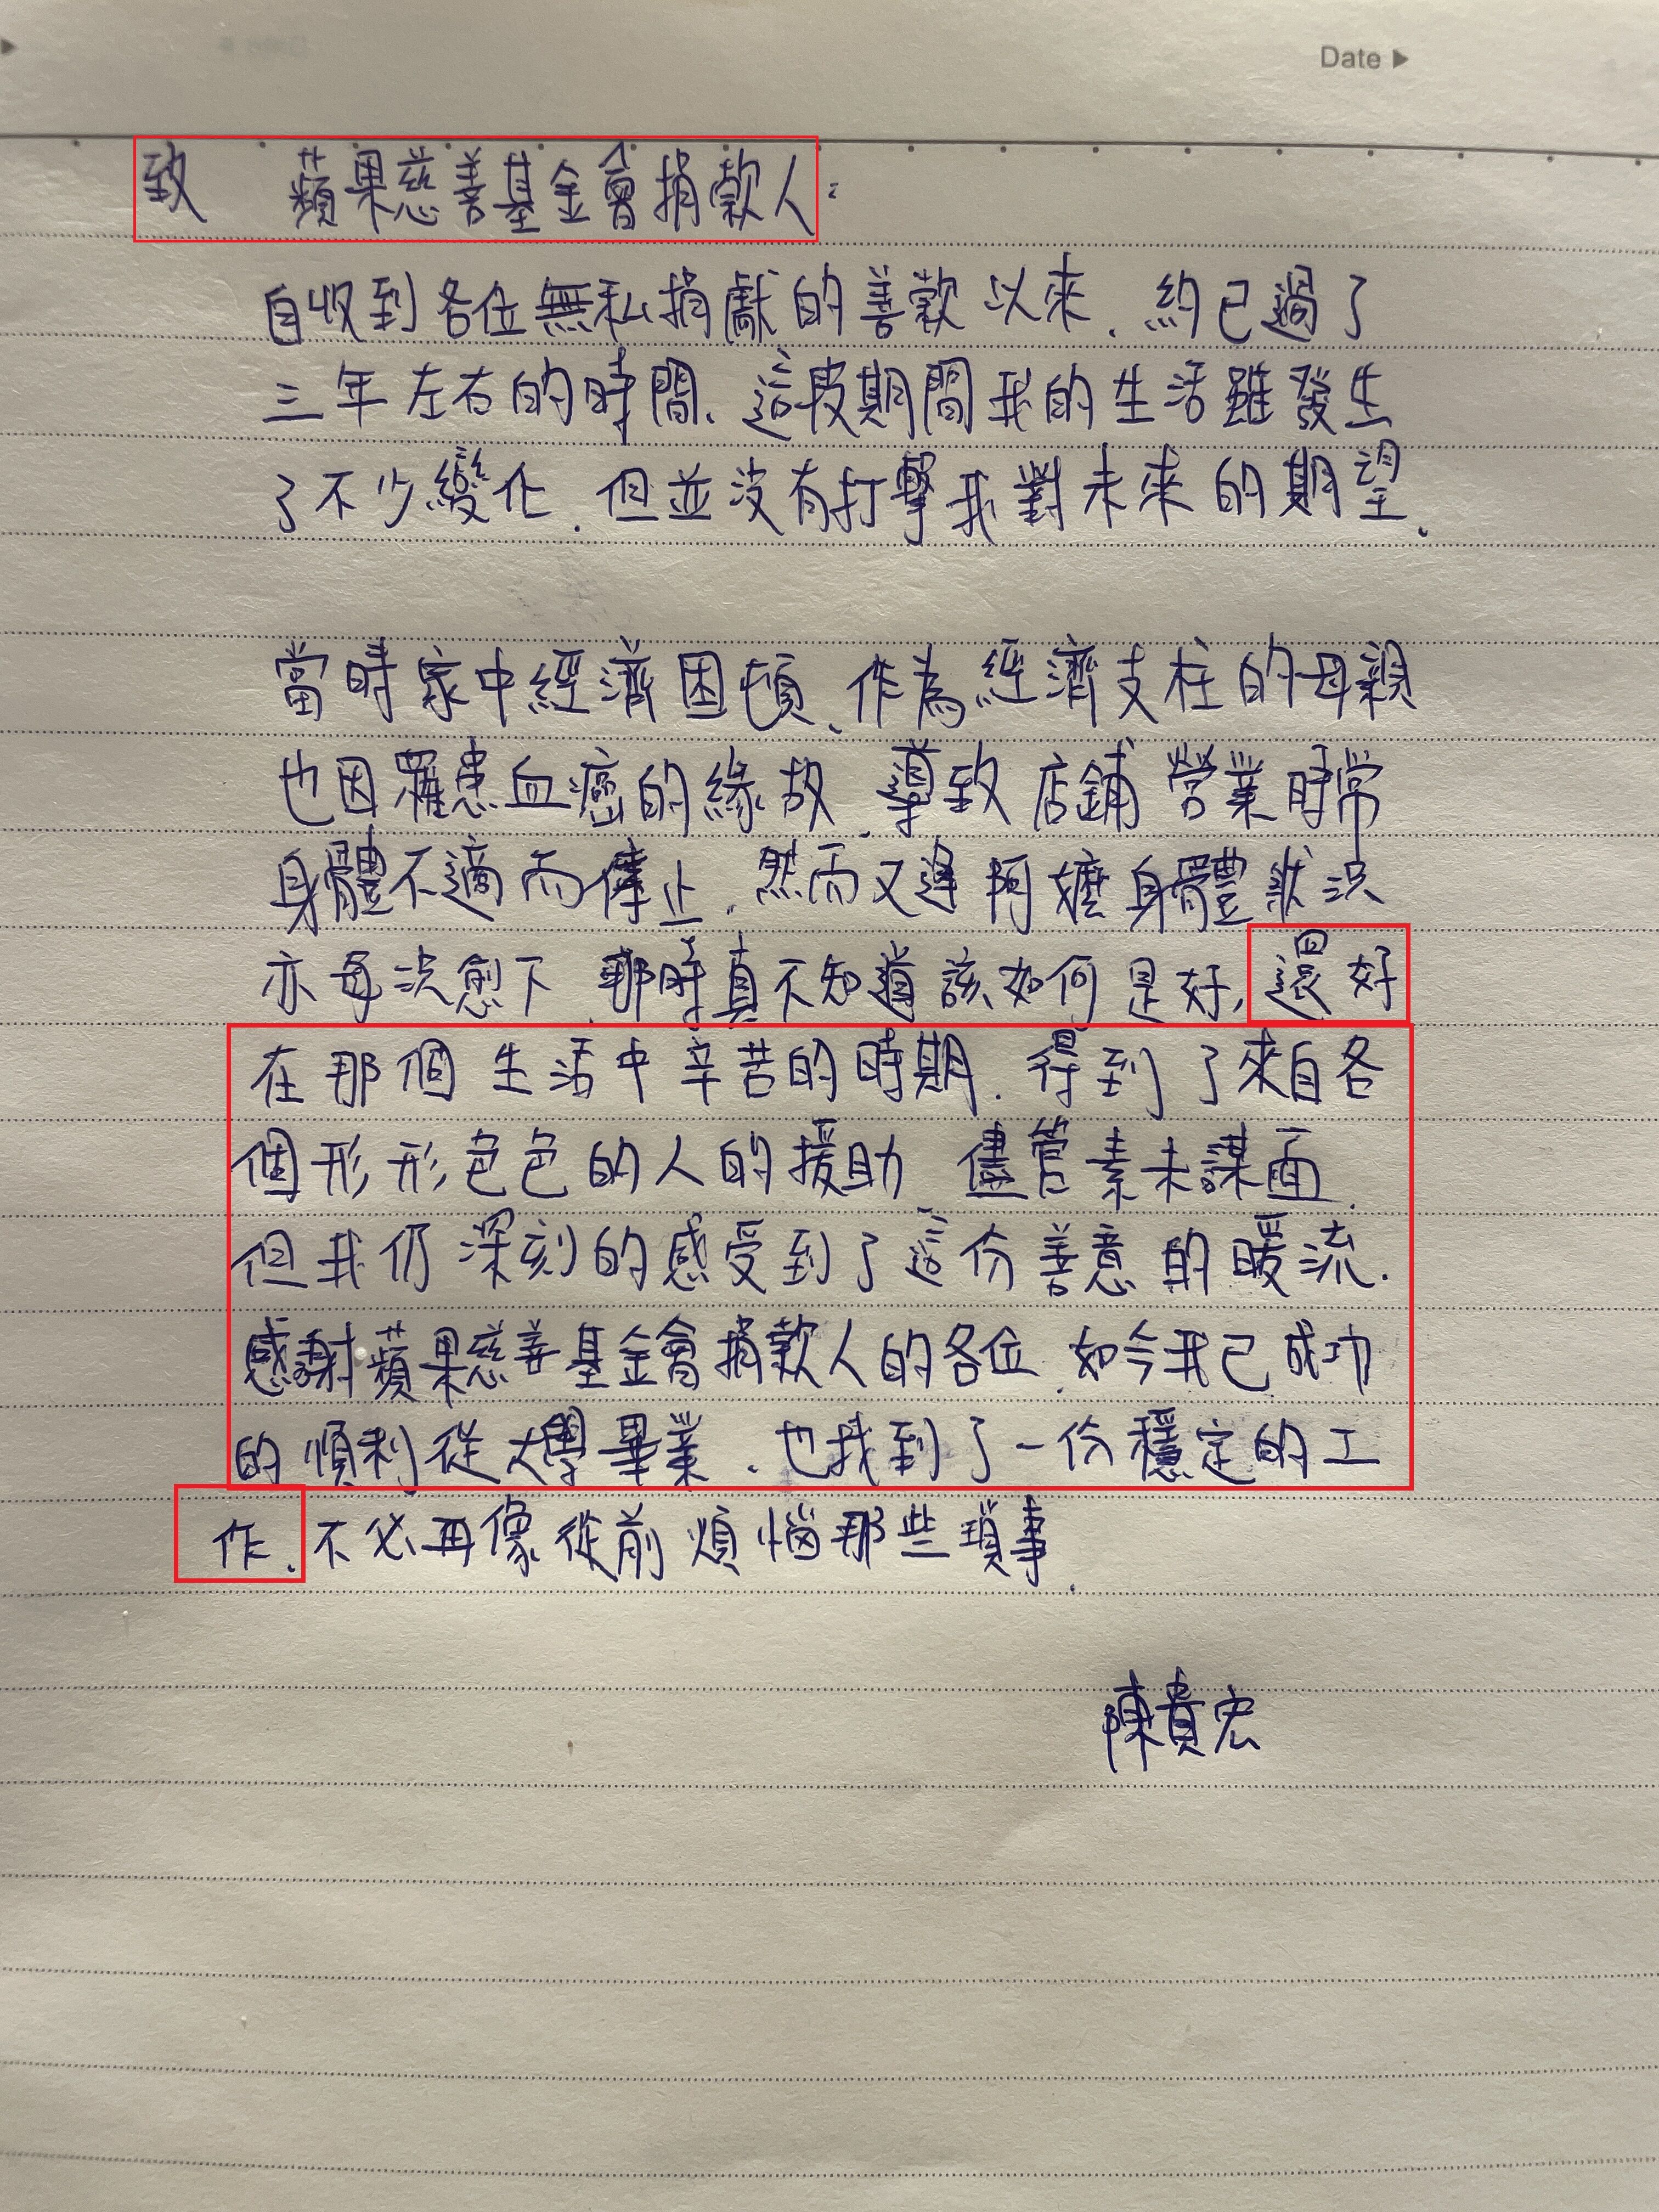 Date ▶
致 蘋果慈善基金會捐款人:
自收到各位無私捐獻的善款以來、約已過了
三年左右的時間、這段期間我的生活雖發生
了不少變化、但並沒有打擊我對未來的期望、
當時家中經濟困頓、作為經濟支柱的母親
也因罹患血癌的緣故、導致店鋪營業時常
身體不適而停止、然而又逢阿嬤身體狀況
亦每況愈下、那時真不知道該如何是好、還好
在那個生活中辛苦的時期、得到了來自各
個形形色色的人的援助、儘管素未謀面、
但我仍深刻的感受到了這份善意的暖流.
感謝蘋果慈善基金會捐款人的各位、如今我已成功
的順利從大學畢業、也找到了一份穩定的工
作、不必再像從前煩惱那些瑣事、
陳貴宏